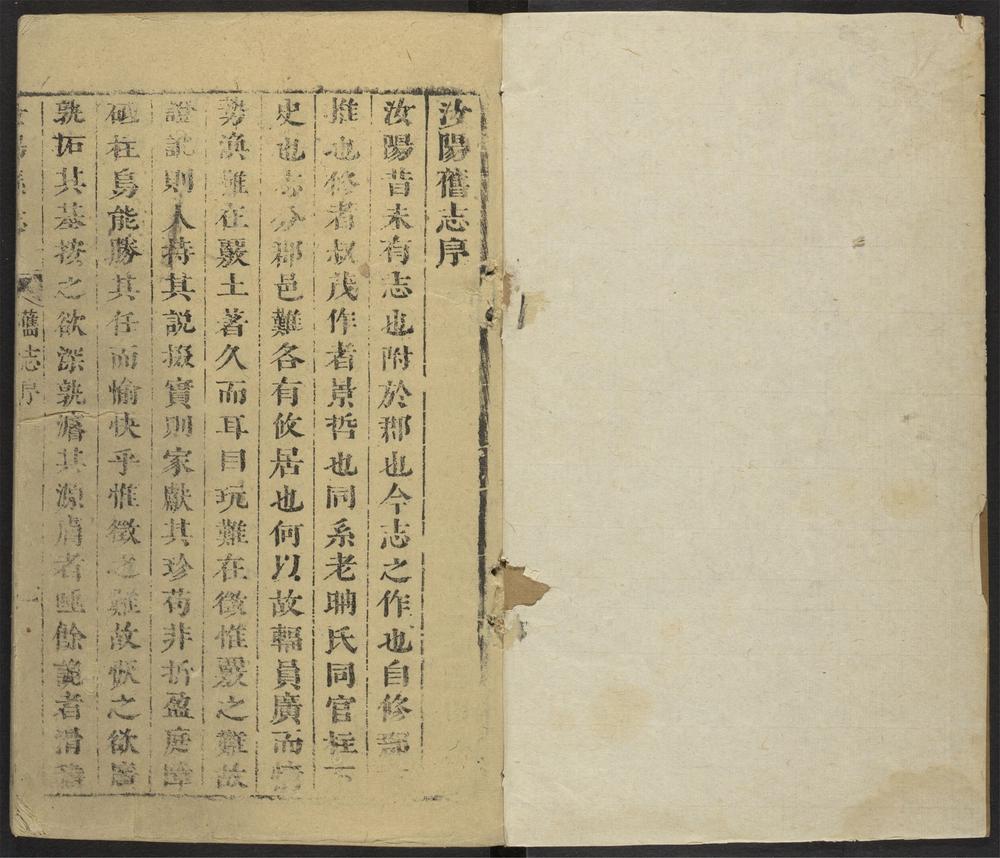 汝陽舊志序
汝陽昔未有志也附於郡也今志之作也自修郡
推也修者叔茂作者景哲也同系老聃氏同官柱下
史也志分郡邑難各有攸居也何以故輻員廣而
勢渙難在覈土著久而耳目玩難在徵惟覈之難故
證訛則人持其説掇實則家獻其珍苟非折盈庭障
砥柱烏能勝其任而愉快乎惟徵之難故恢之欲廣
孰拓其基按之欲深孰濬其源膚者唾餘詭者滑稽
汝陽縣志
舊志序
一